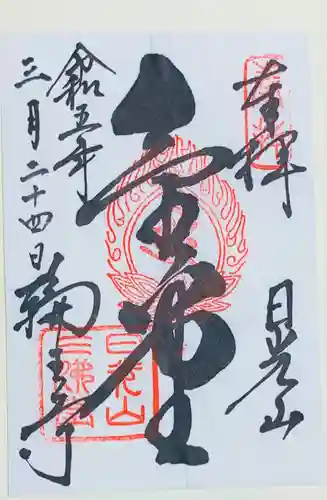 奉拝
日光山
金堂
日光山
三佛堂
令和五年
三月二十四日
輪王寺